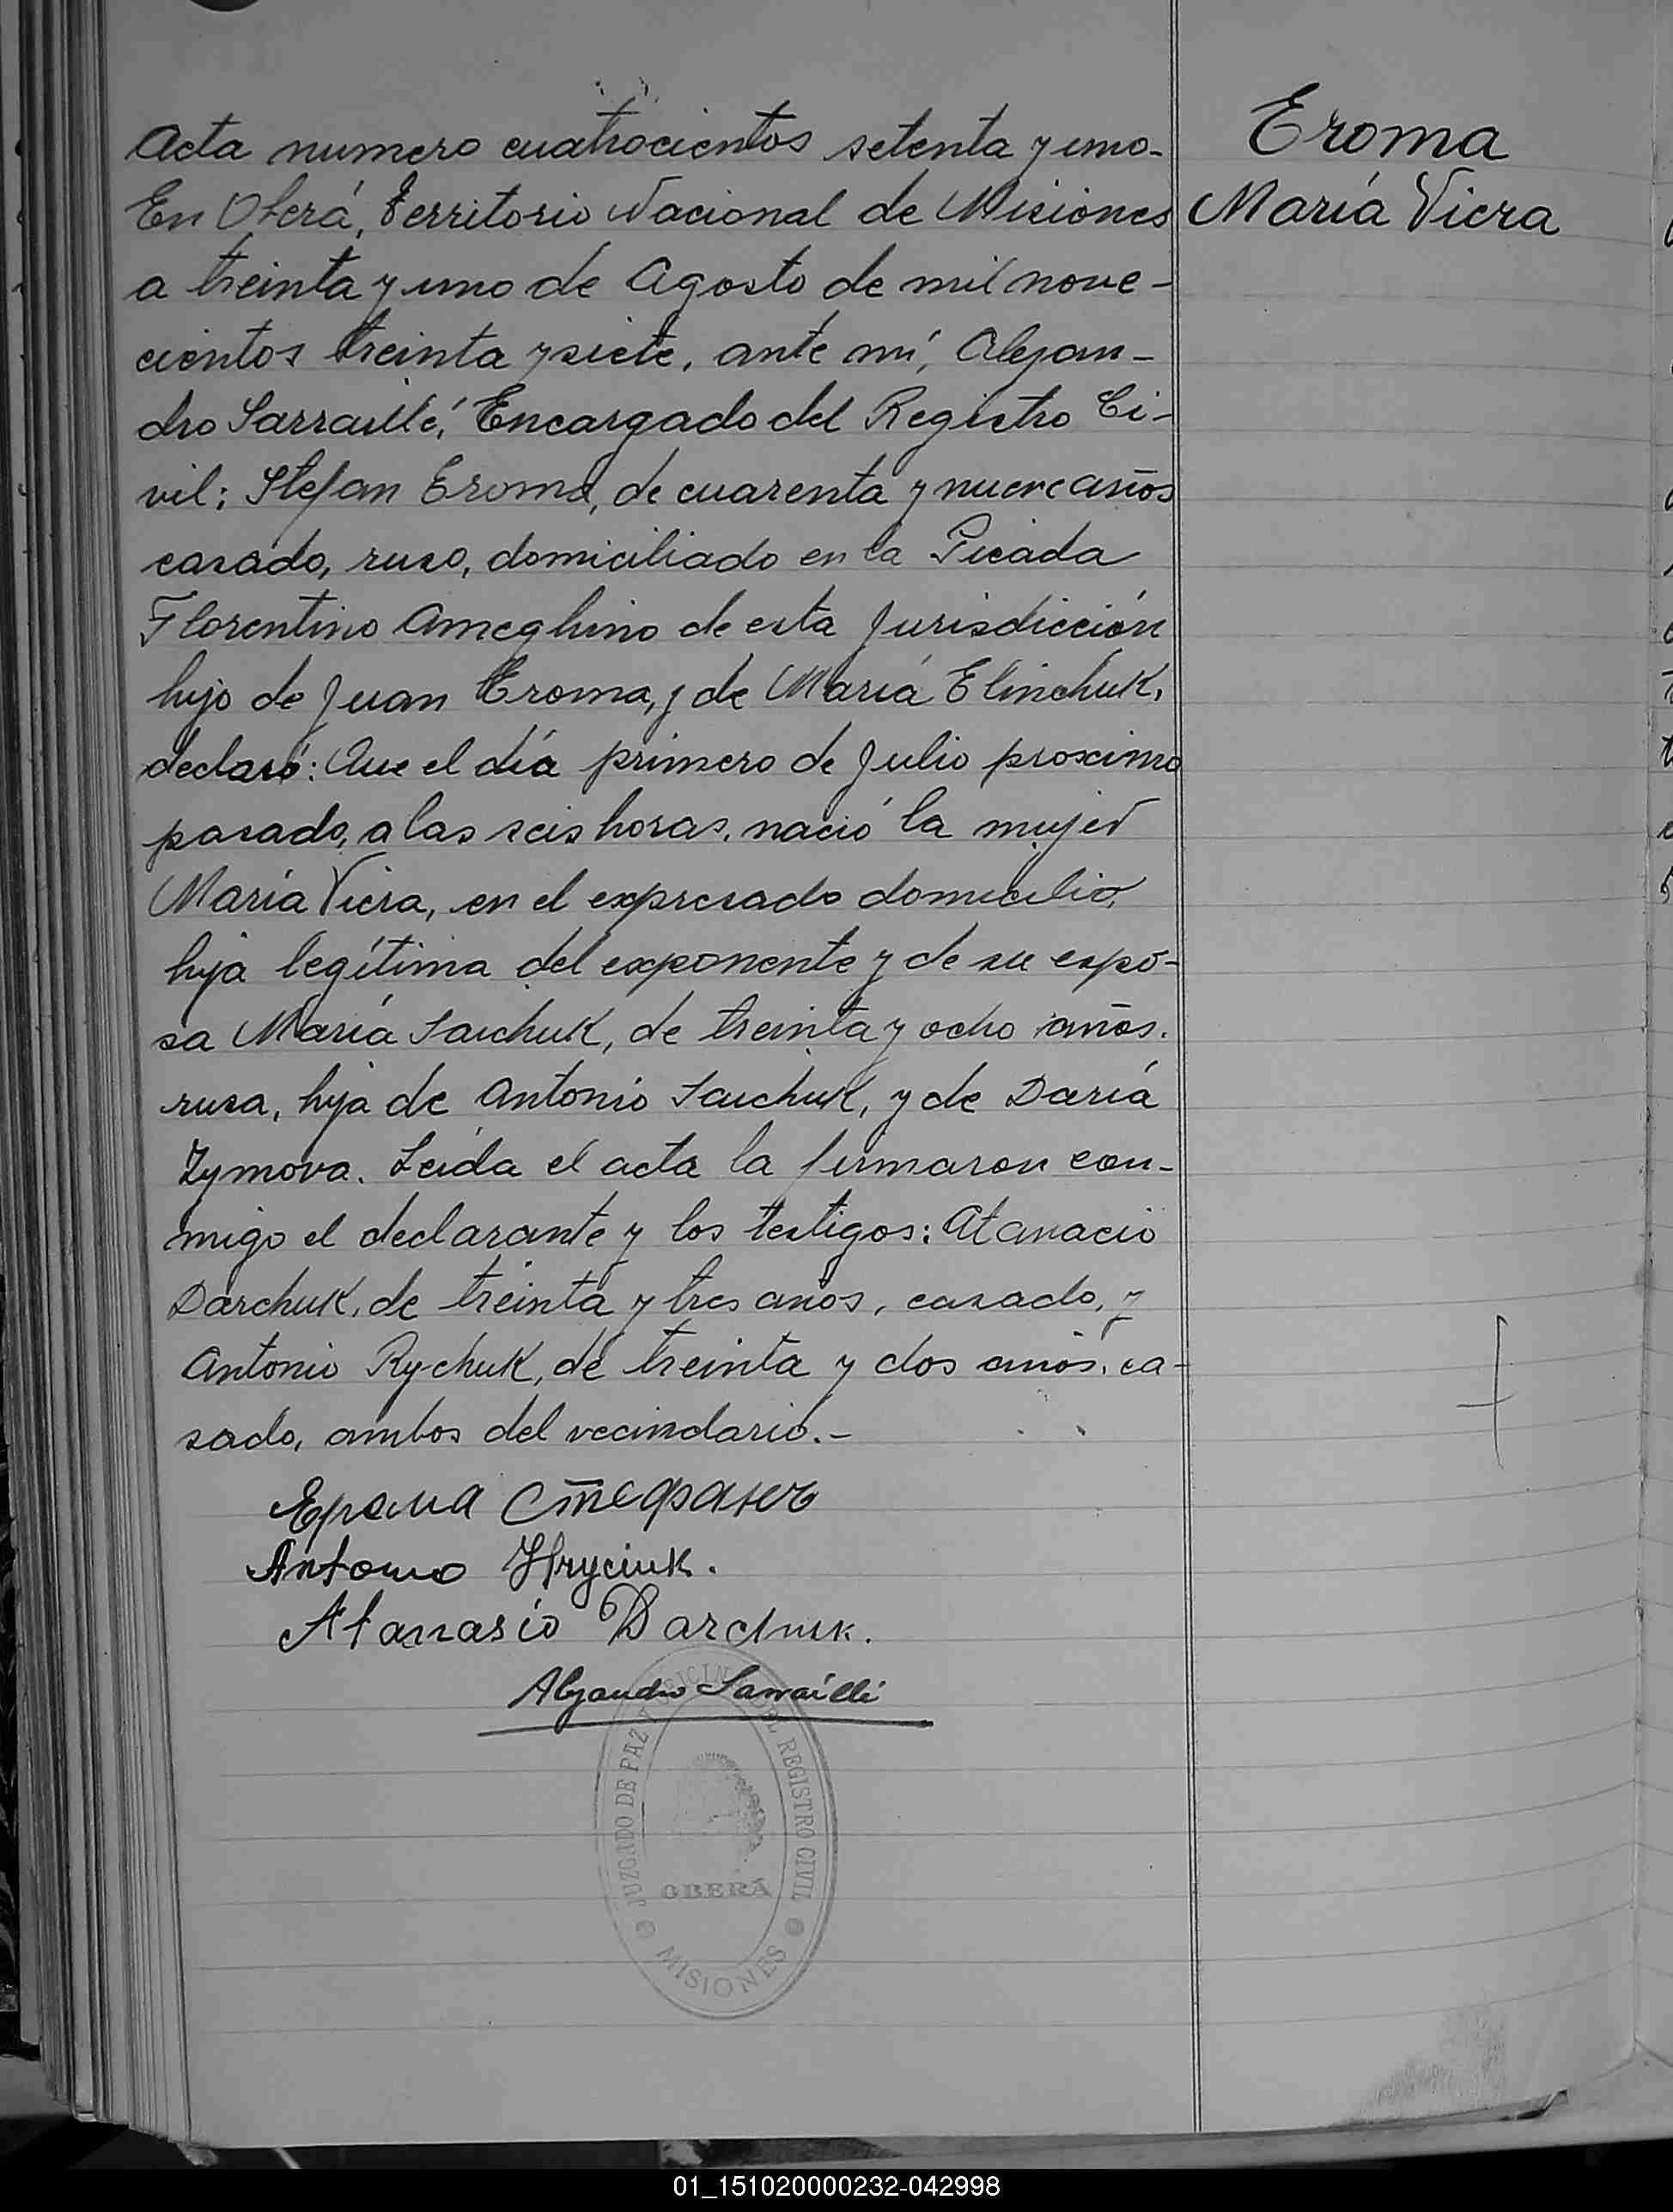 Acta numero cuatrocientos setenta y uno-
En Oberá, Territorio Nacional de Misiones
a treinta y uno de Agosto de mil nove-
cientos treinta y siete, ante mí, Alejan-
dro Sarraillé, Encargado del Registro Ci-
vil: Stefan Eroma, de cuarenta y nueve años
casado, ruso, domiciliado en la Picada
Florentino Ameghino de esta Jurisdicción
hijo de Juan Eroma, y de María Elinchuk,
declaró: Que el día primero de Julio proximo
pasado, a las seis horas, nació la mujer
María Viera, en el expresado domicilio,
hija legítima del exponente y de su espo-
sa María Saichuk, de treinta y ocho años.
rusa, hija de Antonio Saichuk, y de Daría
Zymova. Leida el acta la firmaron con-
migo el declarante y los testigos: Atanacio
Darchuk, de treinta y tres años, casado, y
Antonio Rychuk, de treinta y dos años, ca-
sado, ambos del vecindario.-
Ерома Стефанъ
Antonio Hryciuk.
Atanasio Darchuk.
Alejandro Sarraillé
JUZGADO DE PAZ Y OFICINA DEL REGISTRO CIVIL
OBERÁ
MISIONES
Eroma
María Viera
01_151020000232-042998